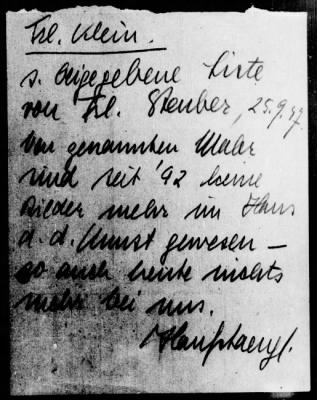 Frl. Klein.
s. beigegebene Liste
von Frl. Steuber, 25.9.47
Von genannten Maler
sind seit '42 keine
Bilder mehr im Haus
d. d. Kunst gewesen –
so auch heute nichts
mehr bei uns.